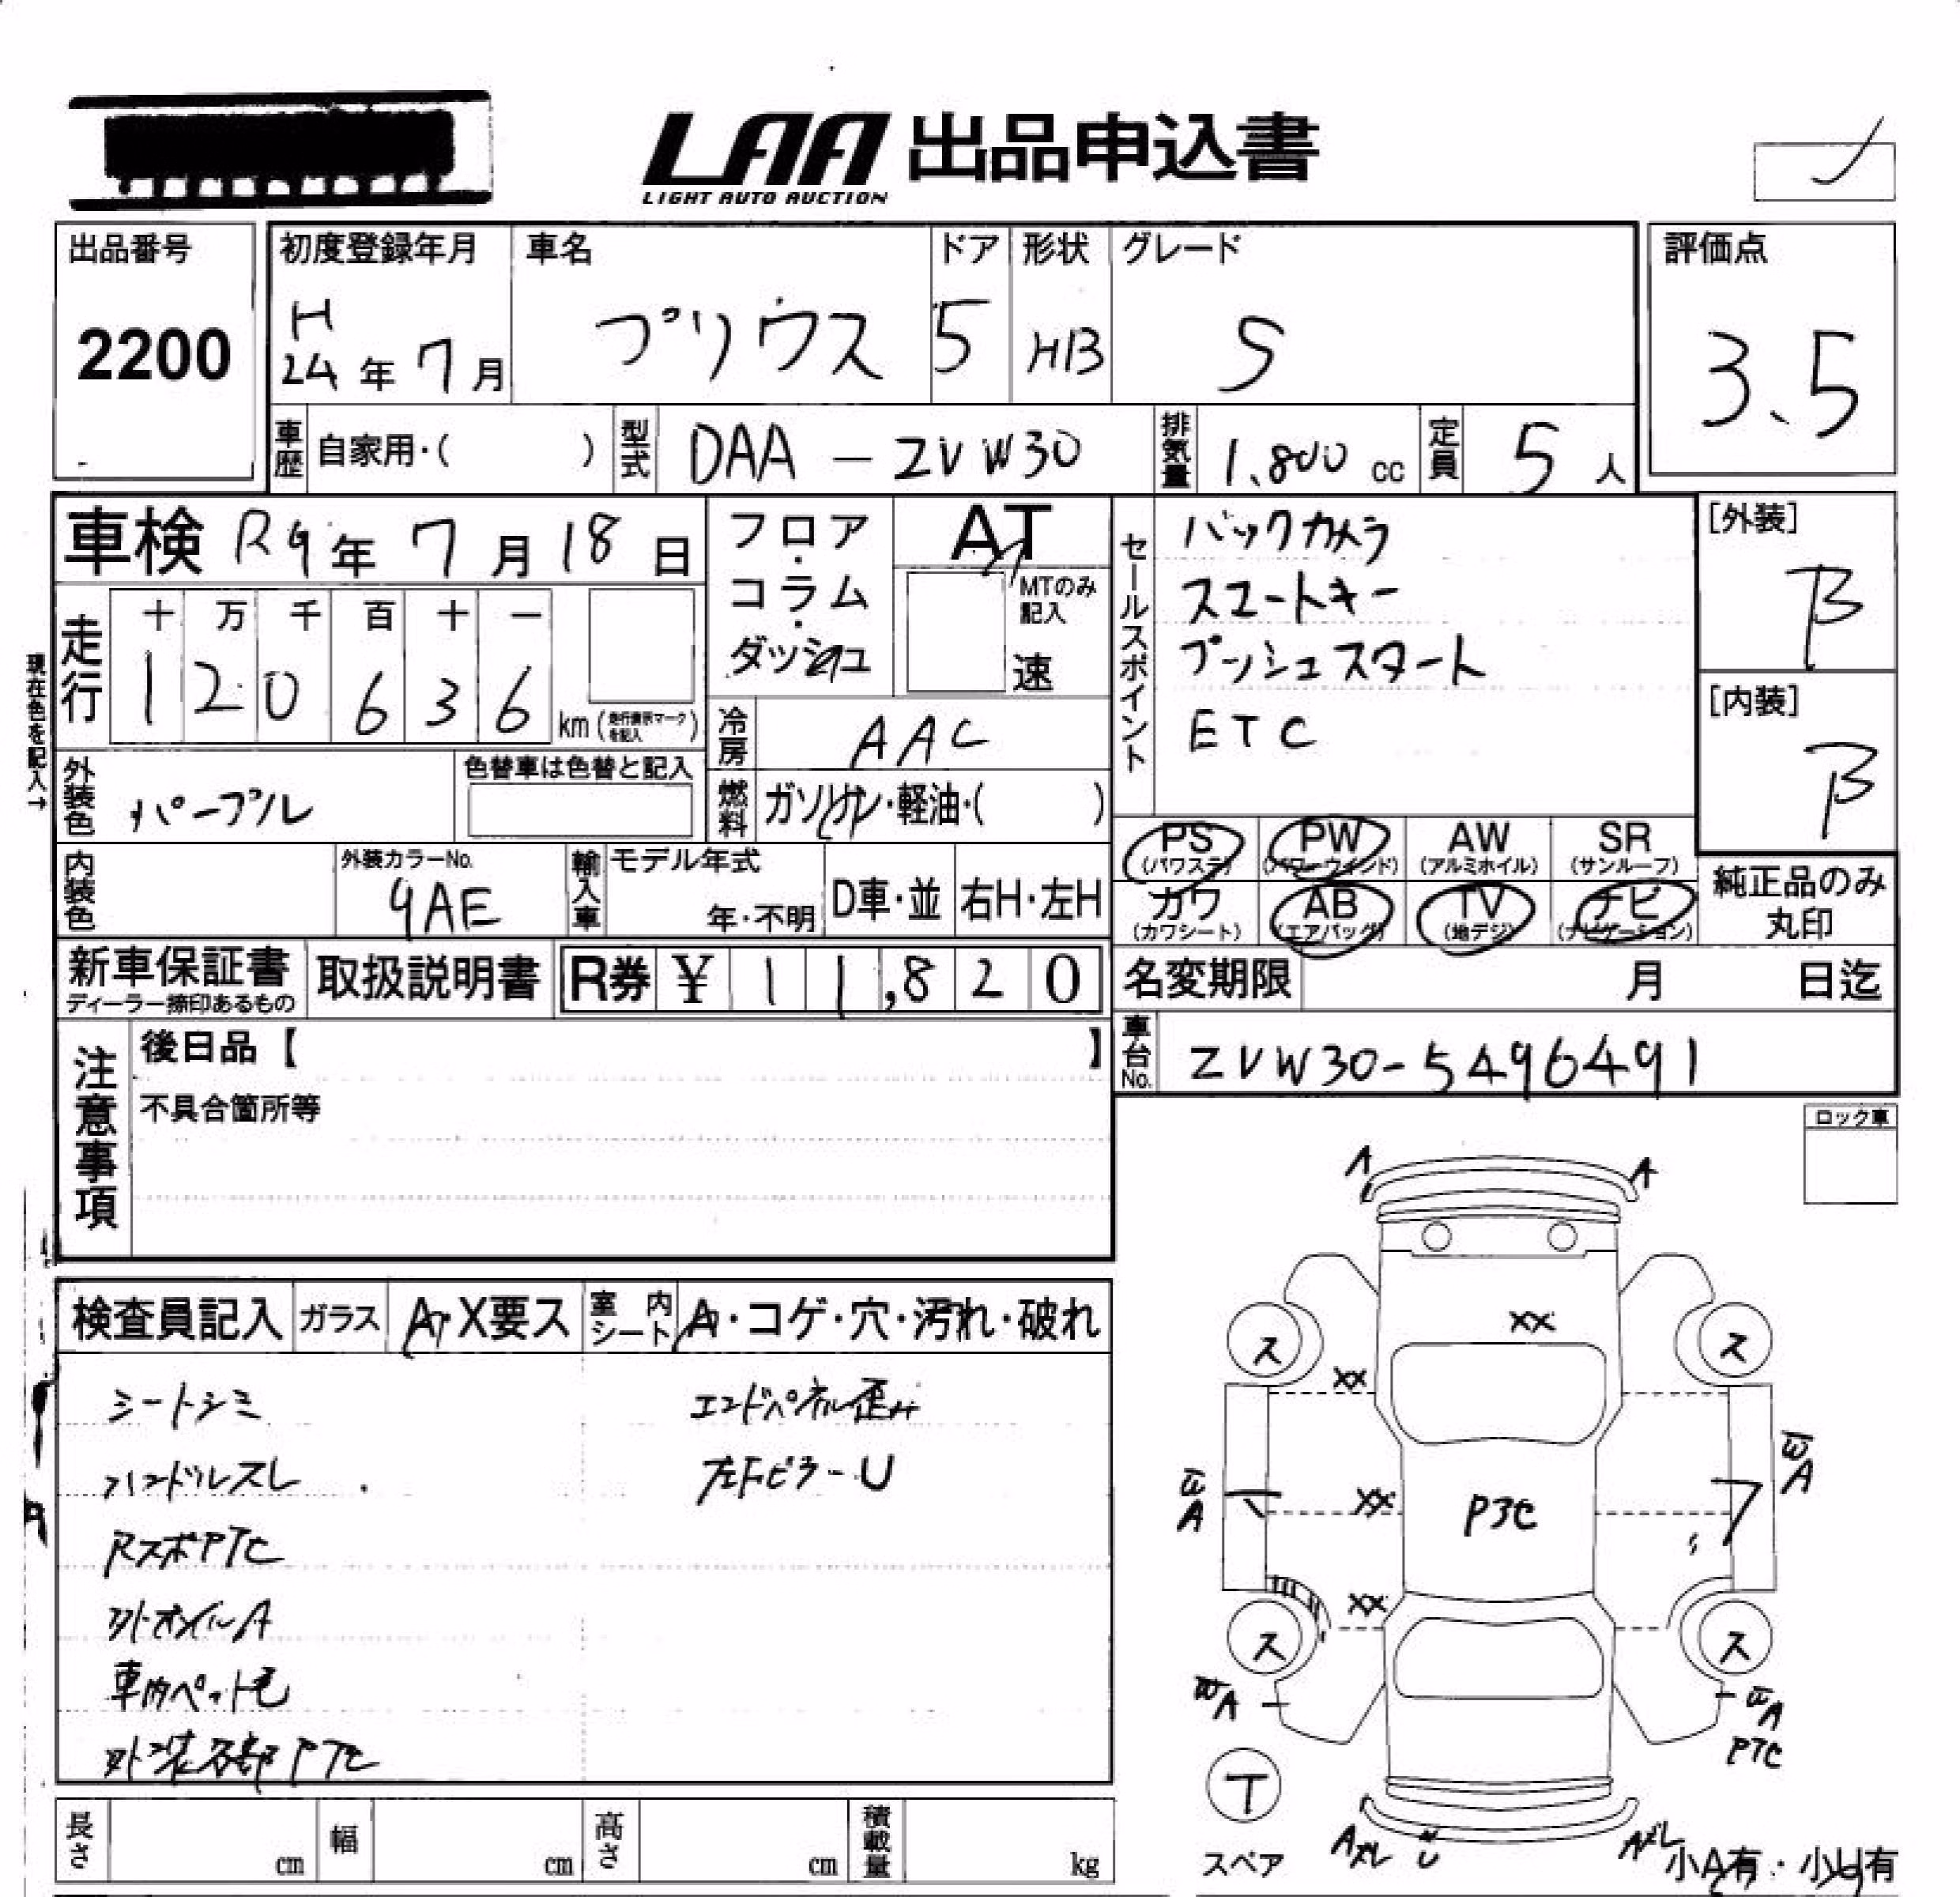 LAA 出品申込書
LIGHT AUTO AUCTION
出品番号
2200
初度登録年月
H
24年 7月
車名
プリウス
ドア
5
形状
HB
グレード
S
評価点
3.5
車歴 自家用・( )
型式 DAA-ZVW30
排気量 1,800 cc
定員 5 人
車検 R9年 7月 18日
フロア・コラム・ダッシュ
AT
MTのみ記入
速
セールスポイント
バックカメラ
スマートキー
プッシュスタート
ETC
[外装]
B
[内装]
B
現在色を記入→
走行
十 万 千 百 十 一
1 2 0 6 3 6
km (走行表示マークを記入)
冷房 AAC
外装色 パープル
色替車は色替と記入
燃料 ガソリン・軽油・( )
PS (パワステ)
PW (パワーウィンド)
AW (アルミホイル)
SR (サンルーフ)
カワ (カワシート)
AB (エアバッグ)
TV (地デジ)
ナビ (ナビゲーション)
純正品のみ
丸印
内装色
外装カラーNo.
9AE
輸入車
モデル年式
年・不明
D車・並
右H・左H
新車保証書
ディーラー捺印あるもの
取扱説明書
R券 ¥ 11,820
名変期限 月 日迄
車台No. ZVW30-5496491
注意事項
後日品【 】
不具合箇所等
ロック車
検査員記入
ガラス
A・X要ス
室内シート
A・コゲ・穴・汚れ・破れ
シートシミ
ハンドルスレ
RスポPTE
外オイルA
車内ペット毛
外装各部PTE
エンドパネル歪み
左Fピラ-U
A
A
XX
XX
XX
XX
P3C
ス
ス
ス
ス
A
A
A
A
PTE
T
スペア
Aズレ
U
Aズレ
小A有・小U有
長さ cm
幅 cm
高さ cm
積載量 kg